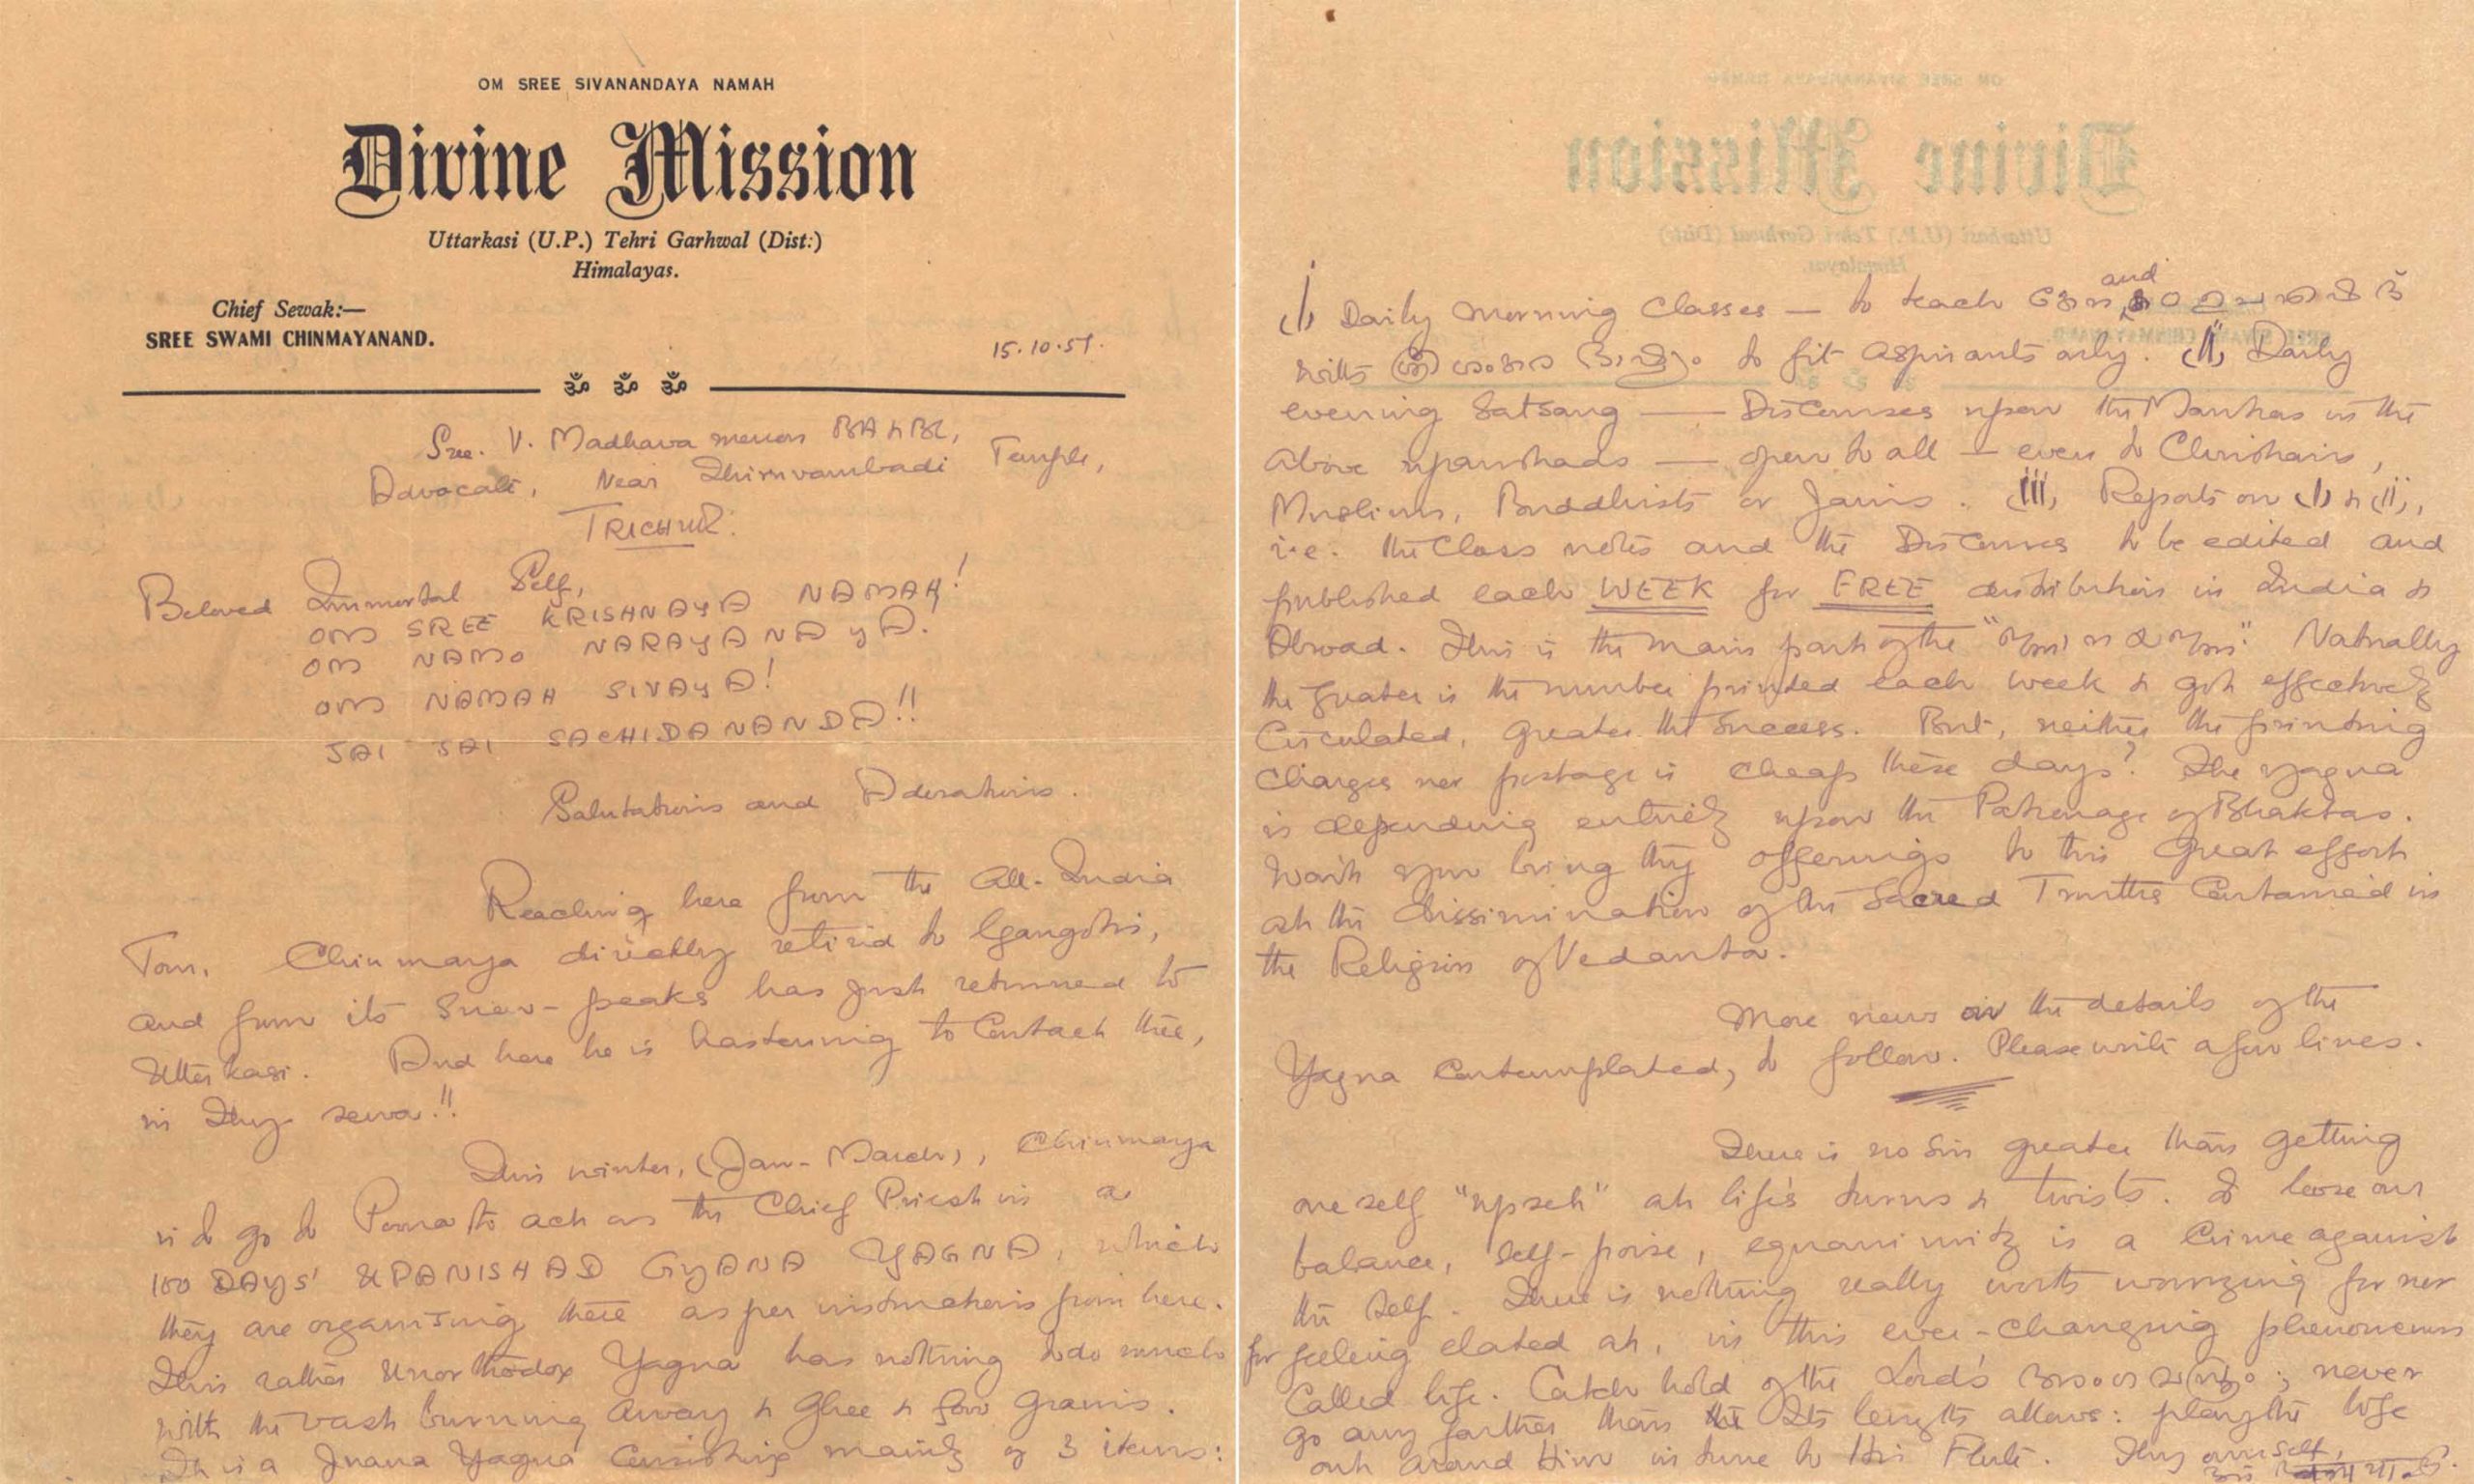 OM SREE SIVANANDAYA NAMAH
Divine Mission
Uttarkasi (U.P.) Tehri Garhwal (Dist:)
Himalayas.
Chief Sewak:—
SREE SWAMI CHINMAYANAND.
15.10.51.
ॐ ॐ ॐ
Sree. V. Madhava menon BA & BL,
Advocate, Near Thiruvambadi Temple,
TRICHUR.
Beloved Immortal Self,
OM SREE KRISHNAYA NAMAH!
OM NAMO NARAYANAYA.
OM NAMAH SIVAYA!
JAI JAI SACHIDANANDA!!
Salutations and Adorations.
Reaching here from the All-India
Tour, Chinmaya directly retired to Gangotri,
and from its Snow-peaks has just returned to
Utterkasi. And here he is hastening to Contact thee,
in Thy sewa!!
This winter, (Jan-March), Chinmaya
is to go to Poona to act as the Chief Priest in a
100 DAYS' UPANISHAD GYANA YAGNA, which
they are organising there as per instructions from here.
This rather Unorthodox Yagna has nothing to do much
with the vast burning away of Ghee & few grains.
It is a Jnana Yagna Consisting mainly of 3 items:
(i) Daily Morning Classes — to teach and
with to fit aspirants only. (ii) Daily
evening Satsang — Discourses upon the Mantras in the
above upanishads — open to all — even to Christians,
Muslims, Buddhists or Jains. (iii) Reports on (i) & (ii),
i.e. the Class notes and the Discourses to be edited and
published each WEEK for FREE distribution in India &
Abroad. This is the main part of the Naturally
the greater is the number printed each week & got effectively
Circulated, greater the Success. But, neither the printing
Charges nor postage is cheap these days? The yagna
is depending entirely upon the Patronage of Bhaktas.
Won't you bring thy offerings to this Great effort
at the dissimination of the Sacred Truths Contained in
the Religion of Vedanta.
More news on the details of the
Yagna Contemplated, to follow. Please write a few lines.
There is no Sin greater than getting
oneself "upset" at life's turns & twists. To loose our
balance, self-poise, equanimity is a Crime against
the Self. There is nothing really worth worrying for nor
for feeling elated at, in this ever-changing phenomenon
Called life. Catch hold of the Lord's never
go any farther than Its length allows: play the life
out around Him in tune to His Flute. Thy own Self,